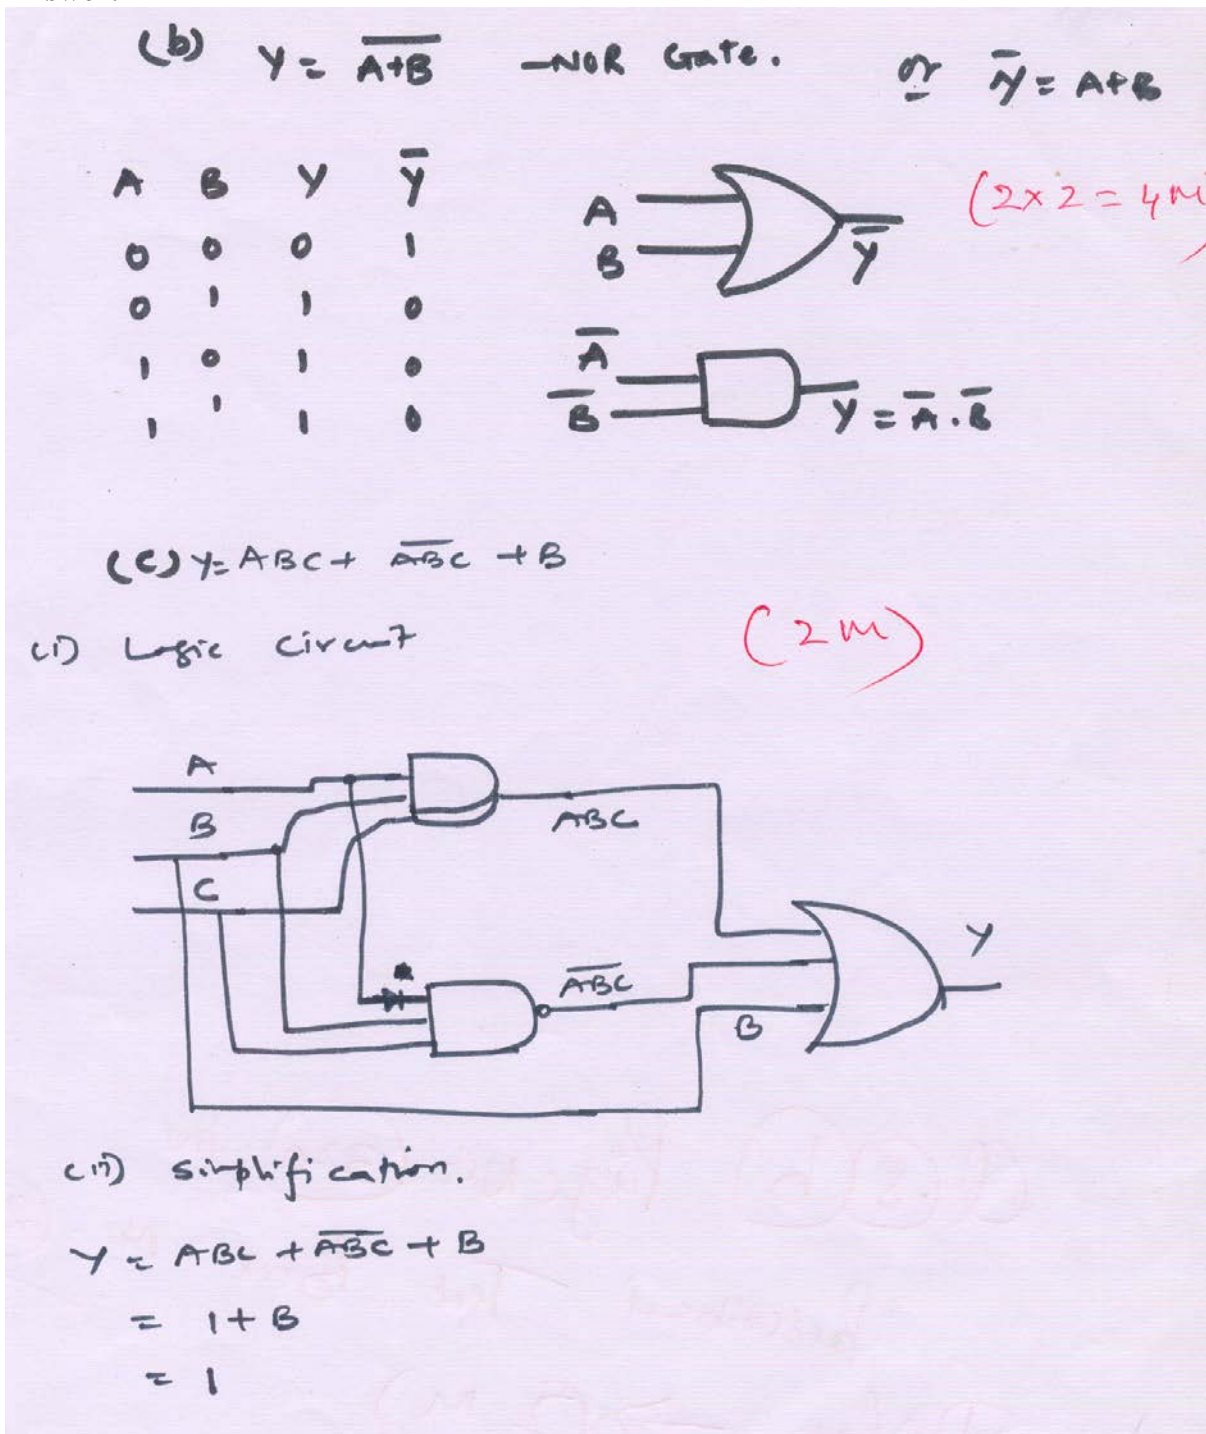 (b) Y = A̅+̅B̅ - NOR Gate. or Y̅ = A+B
A B Y Y̅
0 0 0 1
0 1 1 0
1 0 1 0
1 1 1 0
(2x2 = 4M)
A
B
Y̅
A̅
B̅
Y̅ = A̅.B̅
(c) Y = ABC + A̅B̅C̅ + B
(i) Logic circuit
(2M)
A
B
C
ABC
A̅B̅C̅
B
Y
(ii) simplification.
Y = ABC + A̅B̅C̅ + B
= 1 + B
= 1